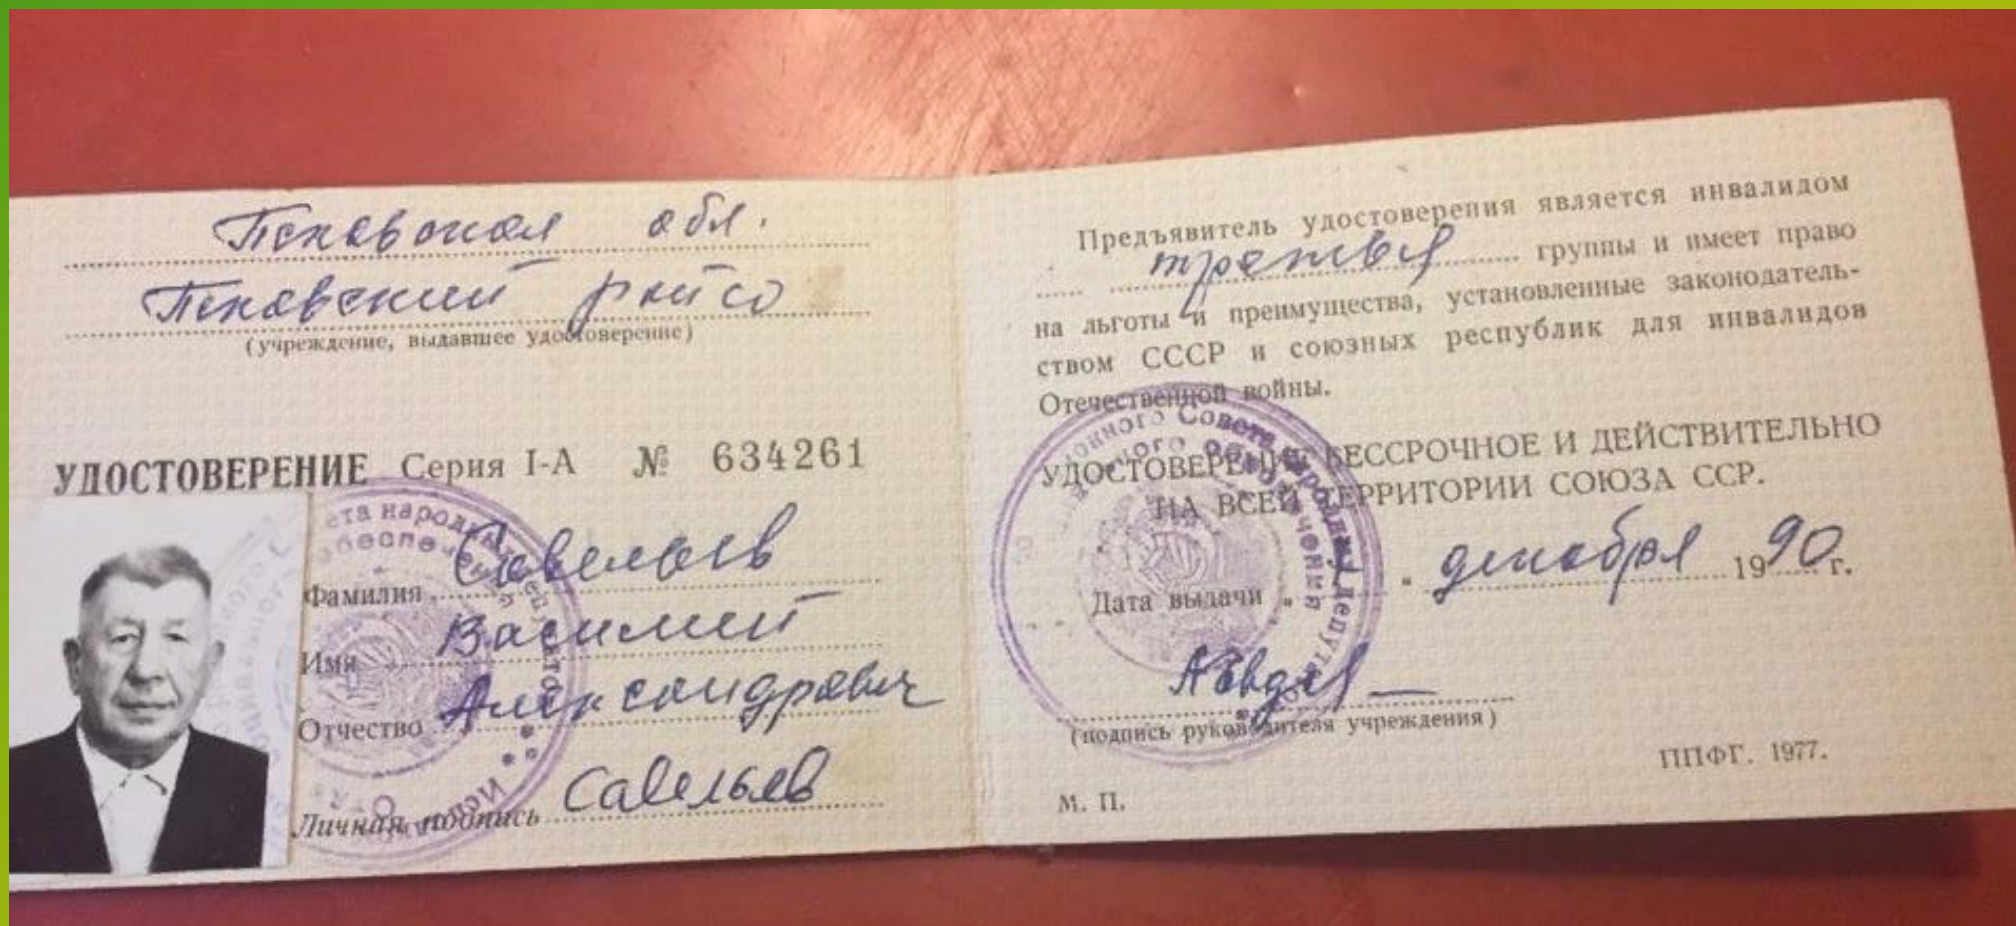 Псковская обл.
Псковский райсо
(учреждение, выдавшее удостоверение)
УДОСТОВЕРЕНИЕ Серия I-А № 634261
Фамилия Савельев
Имя Василий
Отчество Александрович
Личная подпись Савельев
Предъявитель удостоверения является инвалидом
третья группы и имеет право
на льготы и преимущества, установленные законодатель-
ством СССР и союзных республик для инвалидов
Отечественной войны.
УДОСТОВЕРЕНИЕ БЕССРОЧНОЕ И ДЕЙСТВИТЕЛЬНО
НА ВСЕЙ ТЕРРИТОРИИ СОЮЗА ССР.
Дата выдачи " " декабря 1990 г.
(подпись руководителя учреждения)
ППФГ. 1977.
М. П.